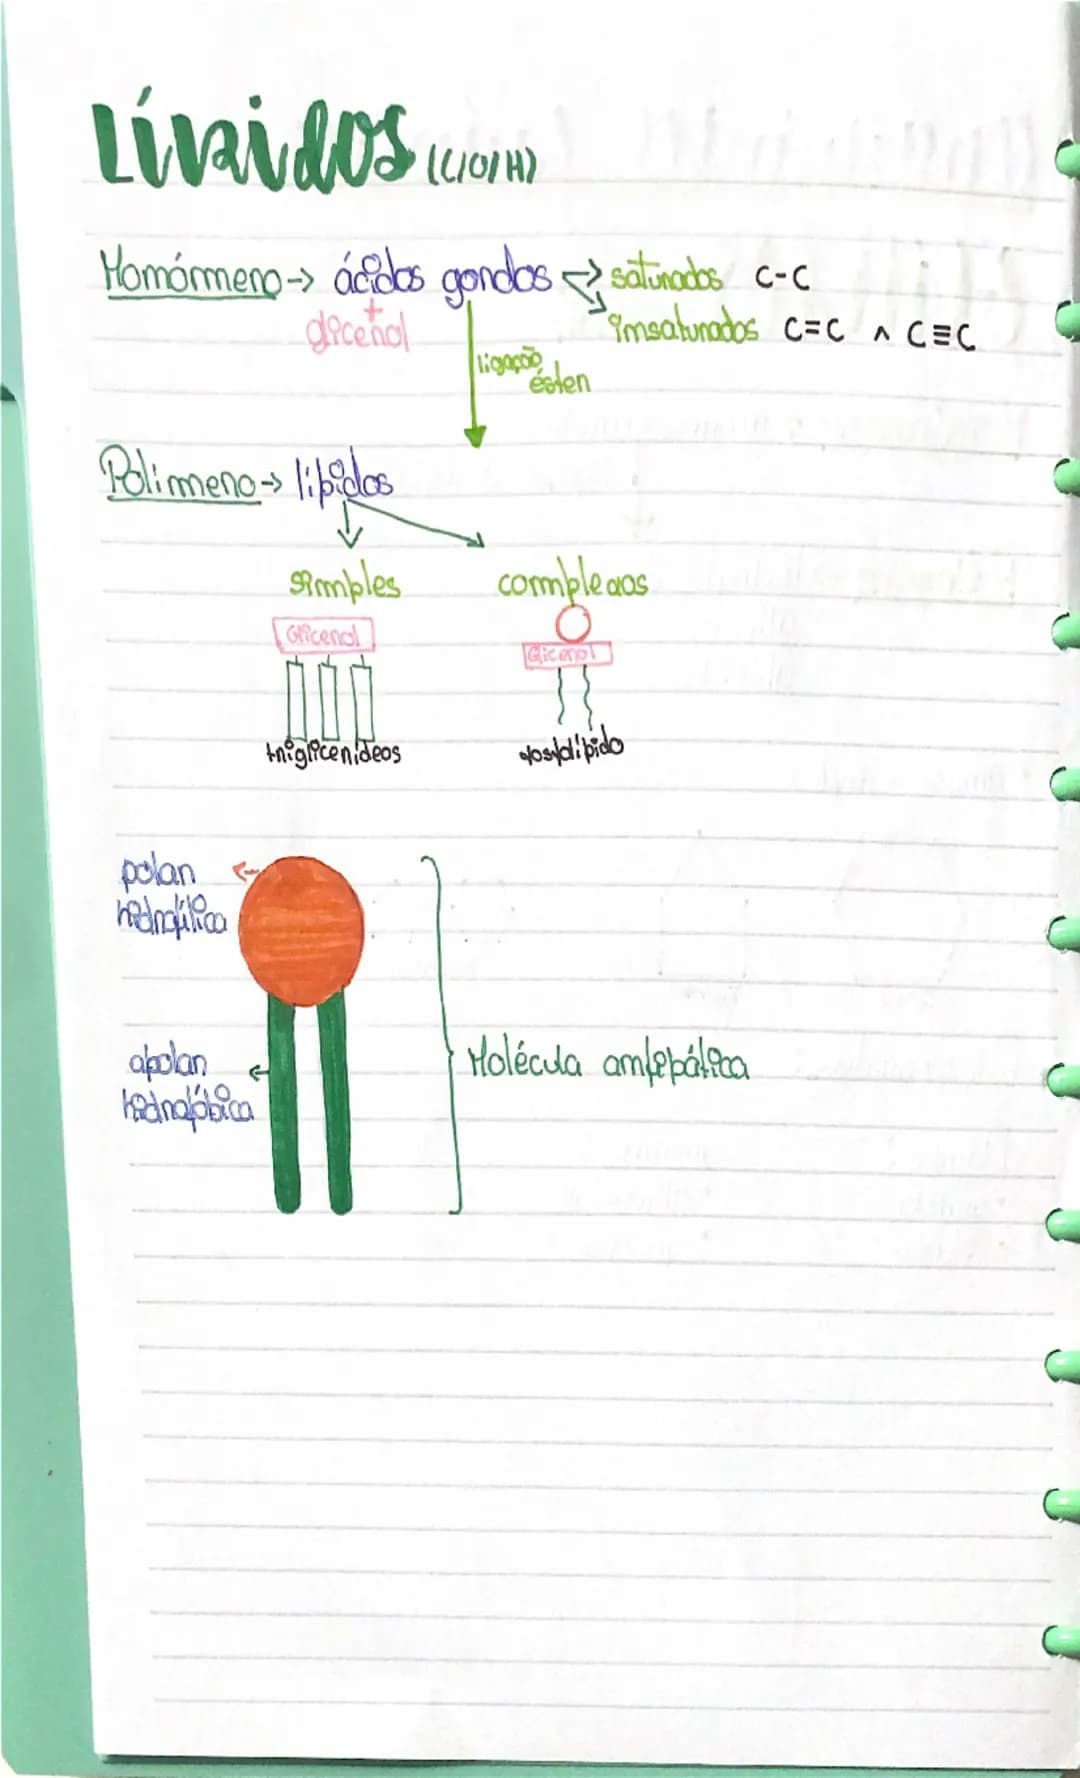 Lípidos (C/O/H)
Monómero → ácidos gordos → saturados C-C
+ glicerol insaturados C=C ∧ C≡C
ligação
éster
Polímero → lípidos
simples complexos
Glicerol Glicerol
triglicerídeos fosfolípido
polar
hidrofílica
Molécula anfipática
apolar
hidrofóbica